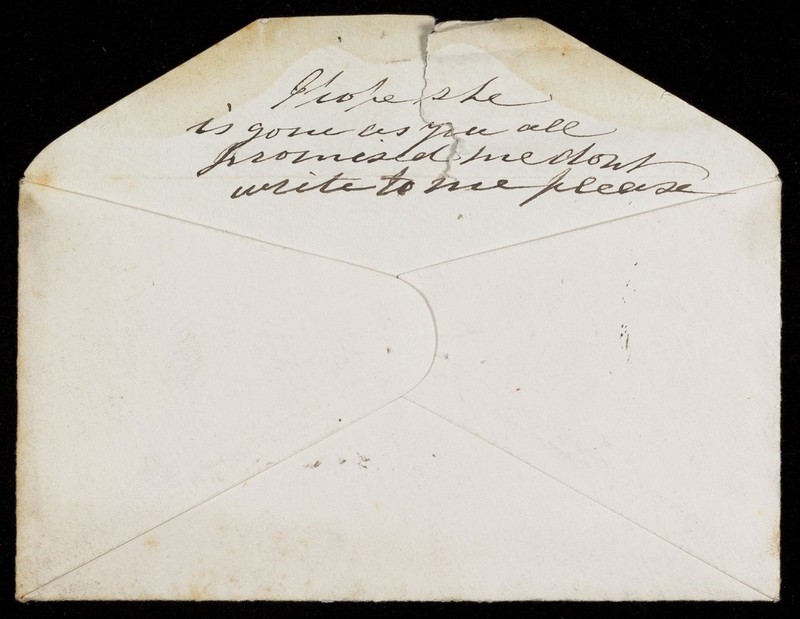 I hope she
is gone as you all
promised me dont
write to me please